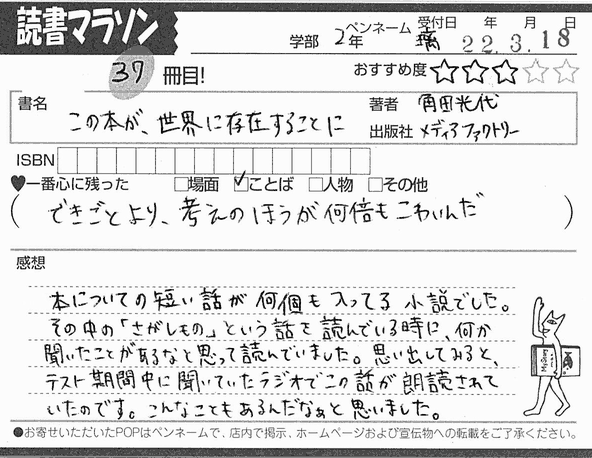 読書マラソン
学部 2年
ペンネーム 璃
受付日 年 月 日
22.3.18
37冊目!
おすすめ度 ☆☆☆☆☆
書名
この本が、世界に存在することに
著者 角田光代
出版社 メディアファクトリー
ISBN
♥一番心に残った □場面 ☑ことば □人物 □その他
(できごとより、考えのほうが何倍もこわいんだ)
感想
本についての短い話が何個も入ってる小説でした。
その中の「さがしもの」という話を読んでいる時に、何か
聞いたことがあるなと思って読んでいました。思い出してみると、
テスト期間中に聞いていたラジオでこの話が朗読されて
いたのです。こんなこともあるんだなぁと思いました。
●お寄せいただいたPOPはペンネームで、店内で掲示、ホームページおよび宣伝物への転載をご了承ください。